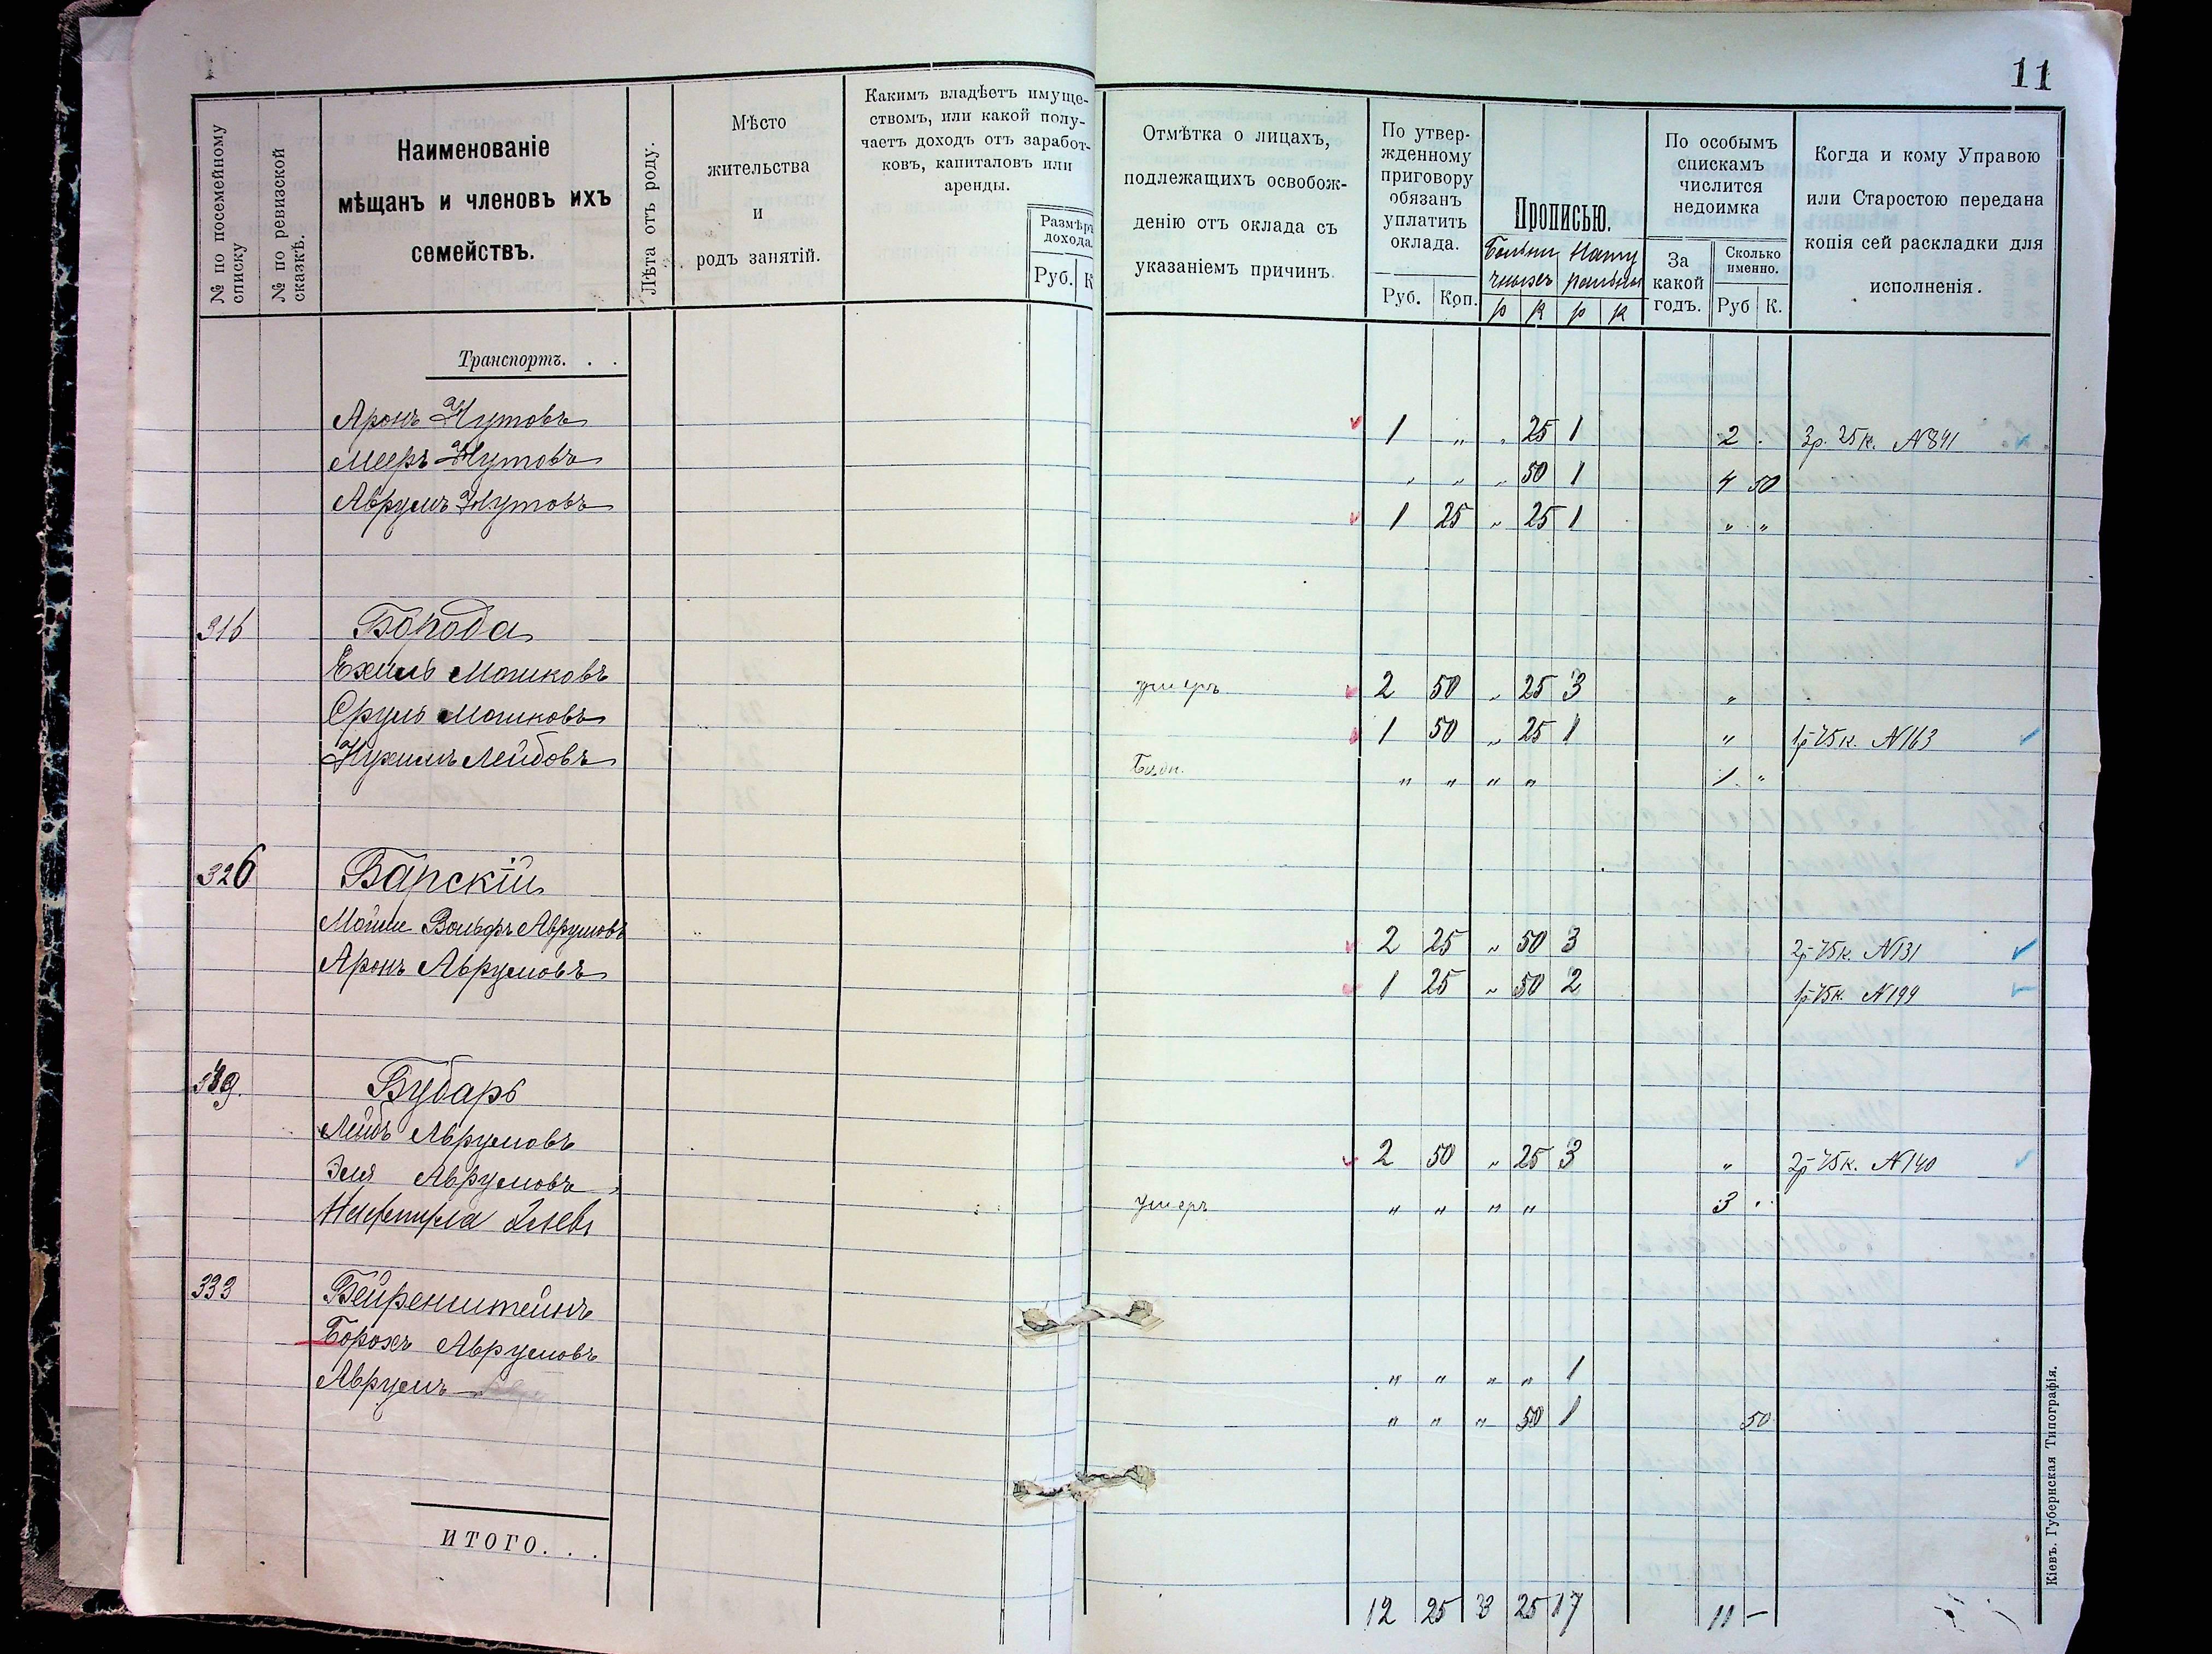 11
№ по посемейному списку
№ по ревизской сказкѣ.
Наименованіе
мѣщанъ и членовъ ихъ
семействъ.
Лѣта отъ роду.
Мѣсто
жительства
и
родъ занятій.
Какимъ владѣетъ имуще-
ствомъ, или какой полу-
чаетъ доходъ отъ заработ-
ковъ, капиталовъ или
аренды.
Размѣръ
дохода.
Руб. К
Отмѣтка о лицахъ,
подлежащихъ освобож-
денію отъ оклада съ
указаніемъ причинъ.
По утвер-
жденному
приговору
обязанъ
уплатить
оклада.
Руб. Коп.
Прописью.
р к р к
По особымъ
спискамъ
числится
недоимка
За
какой
годъ.
Сколько
именно.
Руб К.
Когда и кому Управою
или Старостою передана
копія сей раскладки для
исполненія.
Транспортъ. . .
Аронъ Нутовъ 1 " " 25 1 2 . 3р. 25к. N841
Мееръ Нутовъ " " " 50 1 4 50
Аврумъ Нутовъ 1 25 " 25 1 " "
316 Борода
Ехиль Мошковъ умеръ 2 50 " 25 3 "
Сруль Мошковъ 1 50 " 25 1 " 1р 75к. N163
Нухимъ Лейбовъ Бѣдн. " " " " 1 "
326 Барскій
Мошко Вольфъ Аврумовъ 2 25 " 50 3 2р 75к. N131
Аронъ Аврумовъ 1 25 " 50 2 1р 75к. N199
Бубарь
Лейбъ Аврумовъ 2 50 " 25 3 " 2р 75к. N140
Эля Аврумовъ умеръ " " " " 3 "
Нафтула
333 Бейренштейнъ
Борохъ Аврумовъ " " " " 1
Аврумъ " " " 50 1 50
ИТОГО. . .
12 25 3 25 17 11 –
Кіевъ. Губернская Типографія.